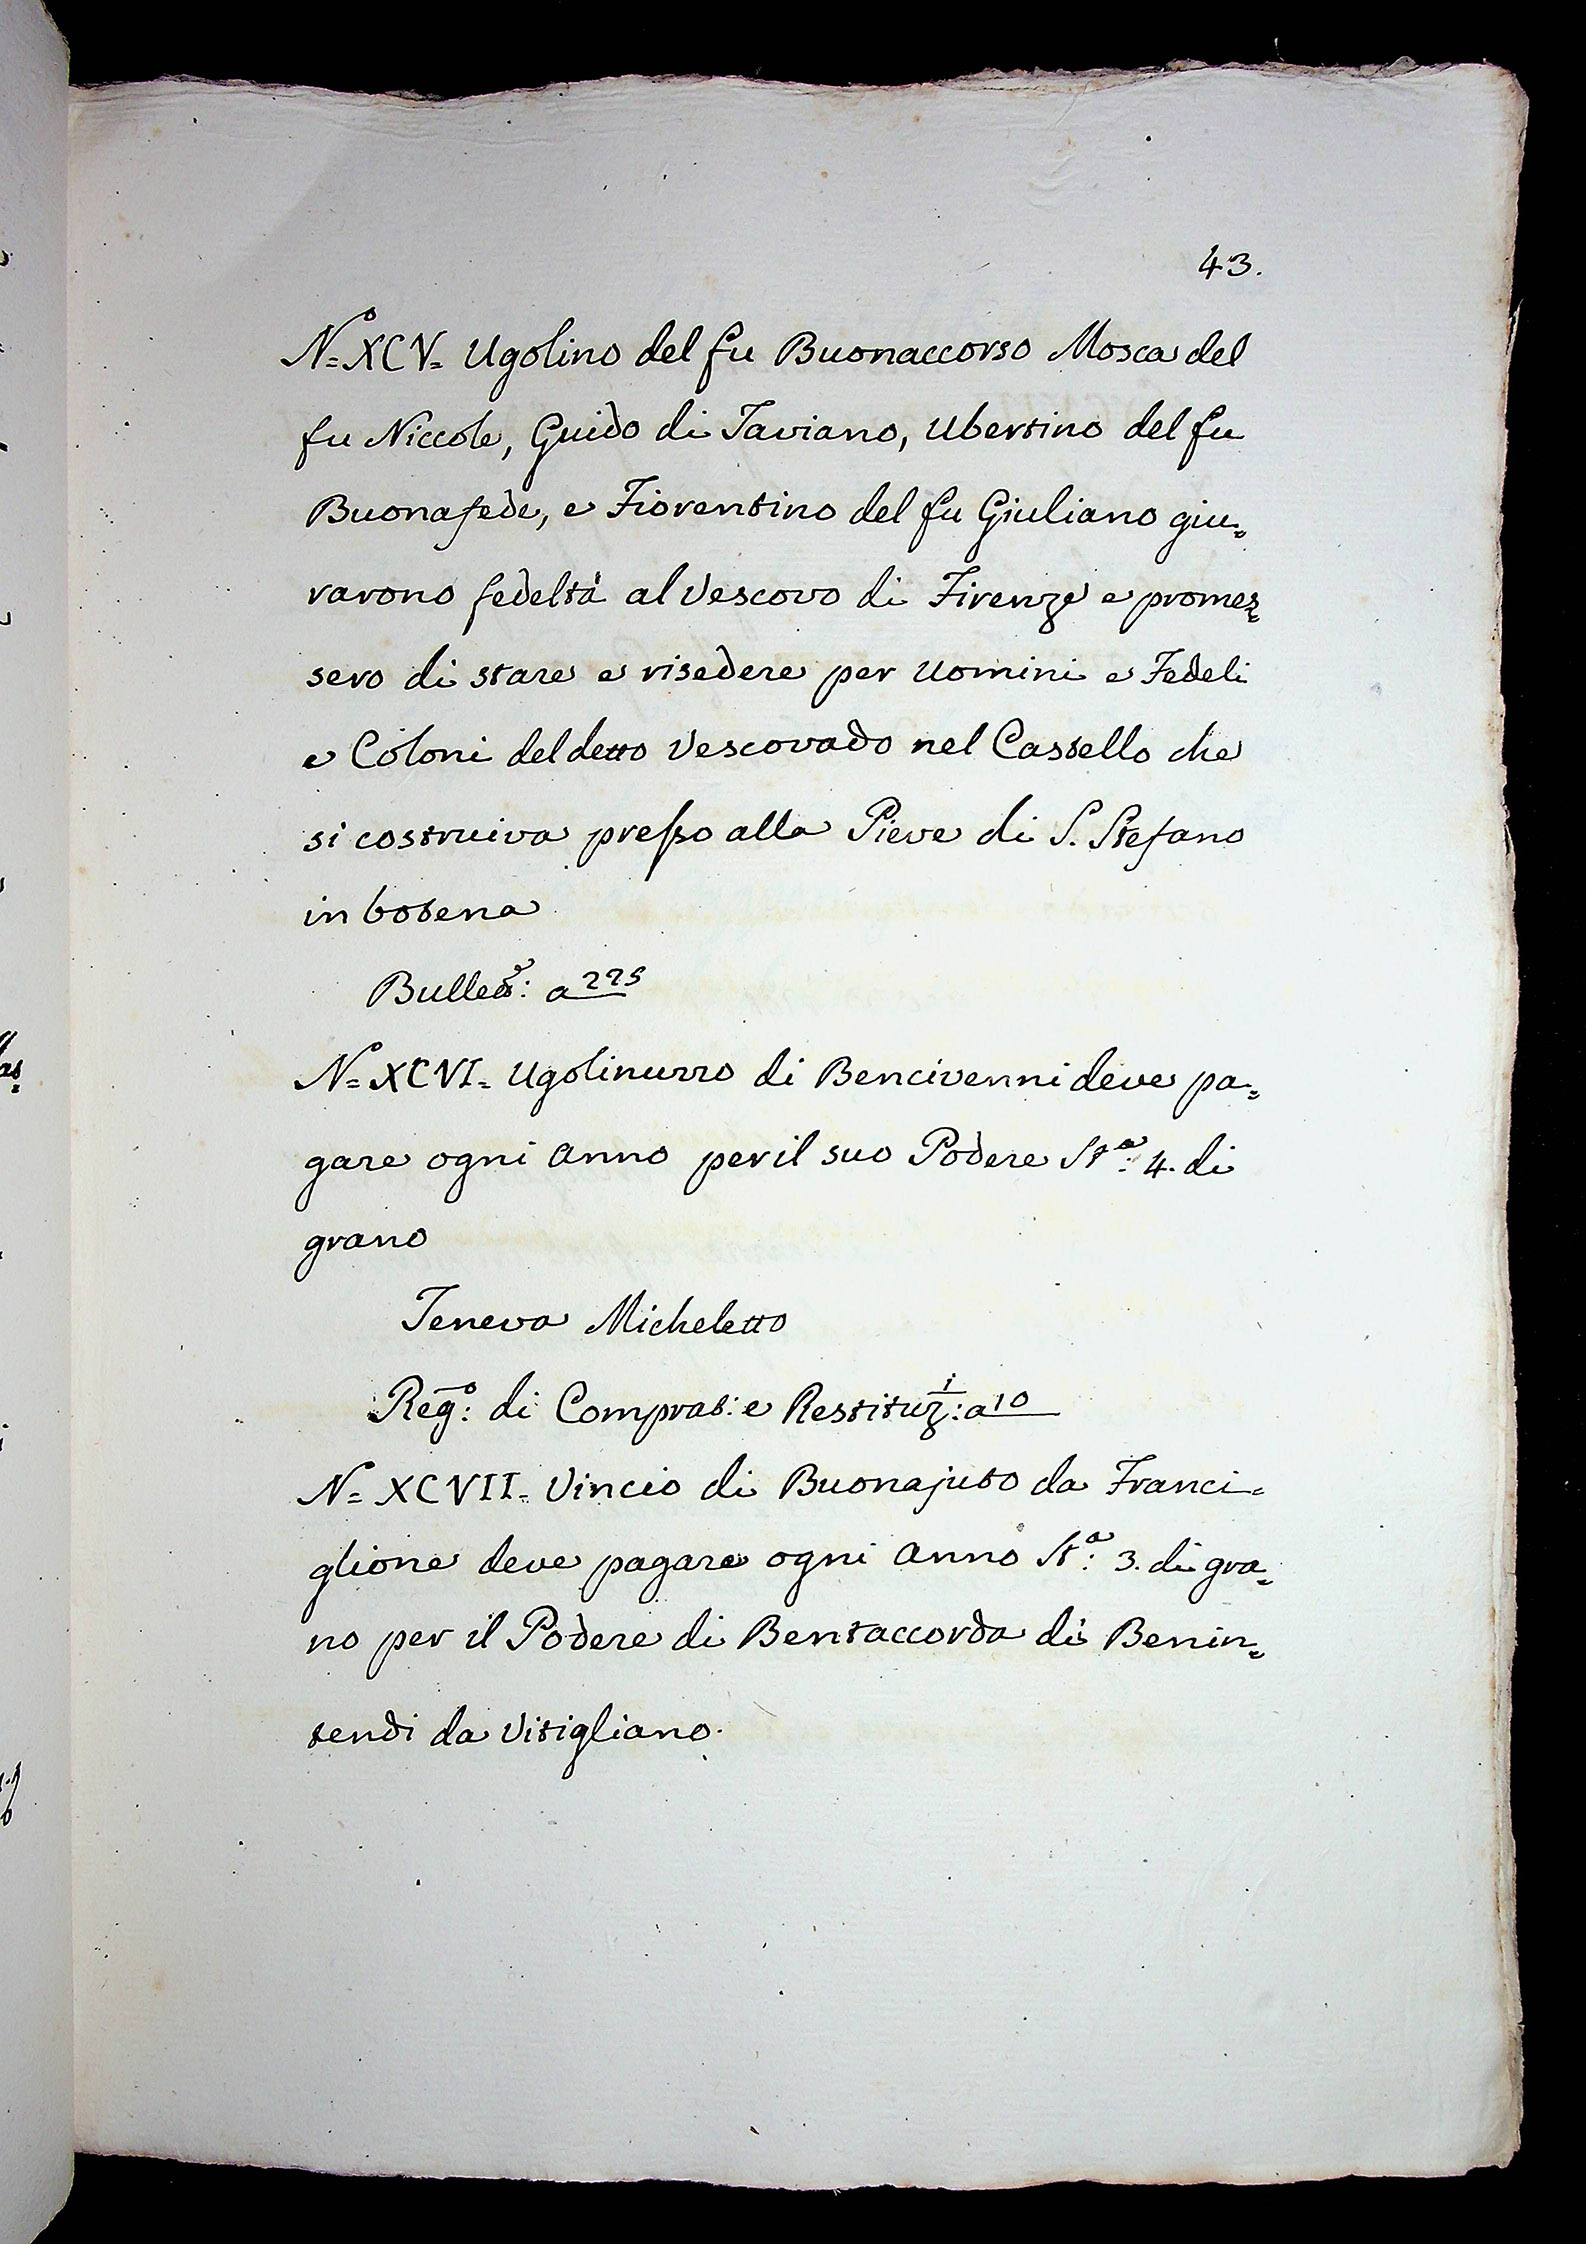 43.
Nº= XCV= Ugolino del fu Buonaccorso Mosca del
fu Niccole, Guido di Taviano, Ubertino del fu
Buonafede, e Fiorentino del fu Giuliano giu=
rarono fedeltà al Vescovo di Firenze e promes=
sero di stare e risedere per Uomini e Fedeli
e Coloni del detto Vescovado nel Castello che
si costruiva presso alla Pieve di S. Stefano
in botena
Bullettº: a 225
Nº= XCVI= Ugolinuzzo di Bencivenni deve pa=
gare ogni anno per il suo Podere Stª: 4. di
grano
Teneva Micheletto
Regº: di Comprat: e Restituz¹: a 10
N= XCVII= Vincio di Buonajuto da Franci=
glione deve pagare ogni anno Stª: 3. di gra=
no per il Podere di Bentaccorda di Benin=
tendi da Vitigliano.